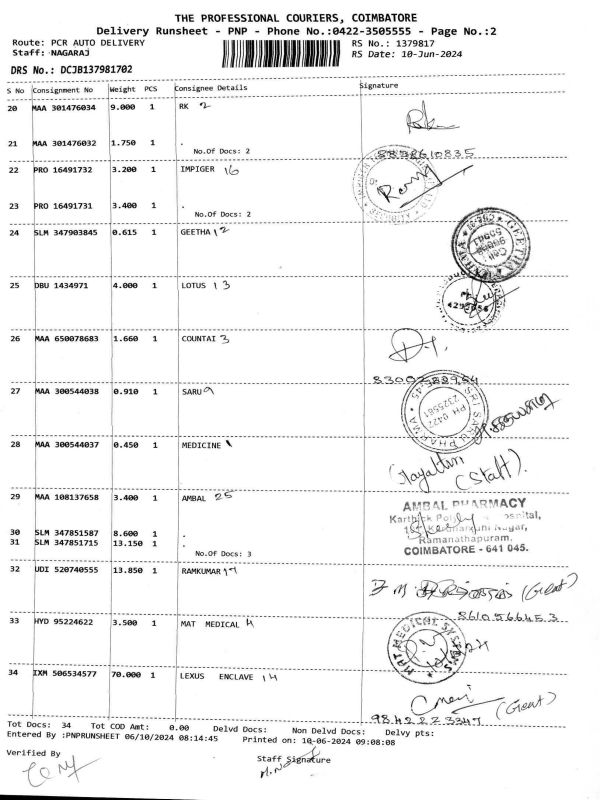 THE PROFESSIONAL COURIERS, COIMBATORE
Delivery Runsheet - PNP - Phone No.:0422-3505555 - Page No.:2
Route: PCR AUTO DELIVERY
RS No.: 1379817
Staff: NAGARAJ
RS Date: 10-Jun-2024
DRS No.: DCJB137981702
S No Consignment No Weight PCS Consignee Details Signature
20 MAA 301476034 9.000 1 RK 2
21 MAA 301476032 1.750 1 .
No.Of Docs: 2
22 PRO 16491732 3.200 1 IMPIGER 16
23 PRO 16491731 3.400 1 .
No.Of Docs: 2
24 SLM 347903845 0.615 1 GEETHA 12
25 DBU 1434971 4.000 1 LOTUS 13
26 MAA 650078683 1.660 1 COUNTAI 3
27 MAA 300544038 0.910 1 SARU 9
SRI SARU PHARMA
PH 0422
2325561
28 MAA 300544037 0.450 1 MEDICINE
(Staff).
29 MAA 108137658 3.400 1 AMBAL 25
AMBAL PHARMACY
Nagar,
Ramanathapuram,
COIMBATORE - 641 045.
30 SLM 347851587 8.600 1 .
31 SLM 347851715 13.150 1 .
No.Of Docs: 3
32 UDI 520740555 13.850 1 RAMKUMAR 17
8610566453
33 HYD 95224622 3.500 1 MAT MEDICAL 4
MAT MEDICAL SYSTEMS
34 IXM 506534577 70.000 1 LEXUS ENCLAVE 14
9842223347
Tot Docs: 34 Tot COD Amt: 0.00 Delvd Docs: Non Delvd Docs: Delvy pts:
Entered By :PNPRUNSHEET 06/10/2024 08:14:45 Printed on: 10-06-2024 09:08:08
Verified By
Staff Signature